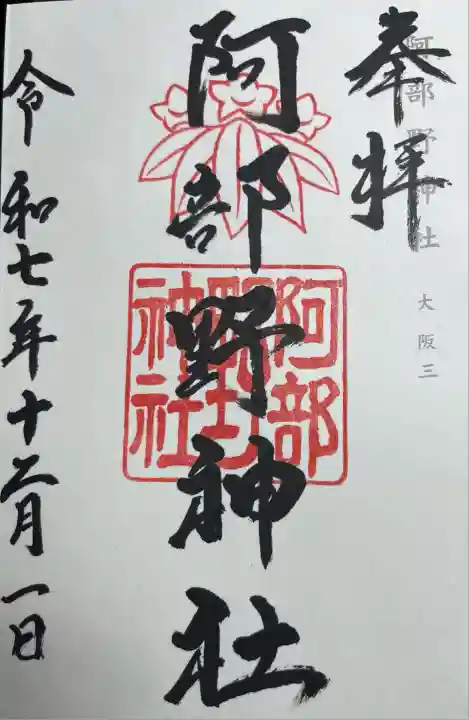 奉拝
阿部野神社 大阪三
阿部野神社
阿部野神社
令和七年十二月一日